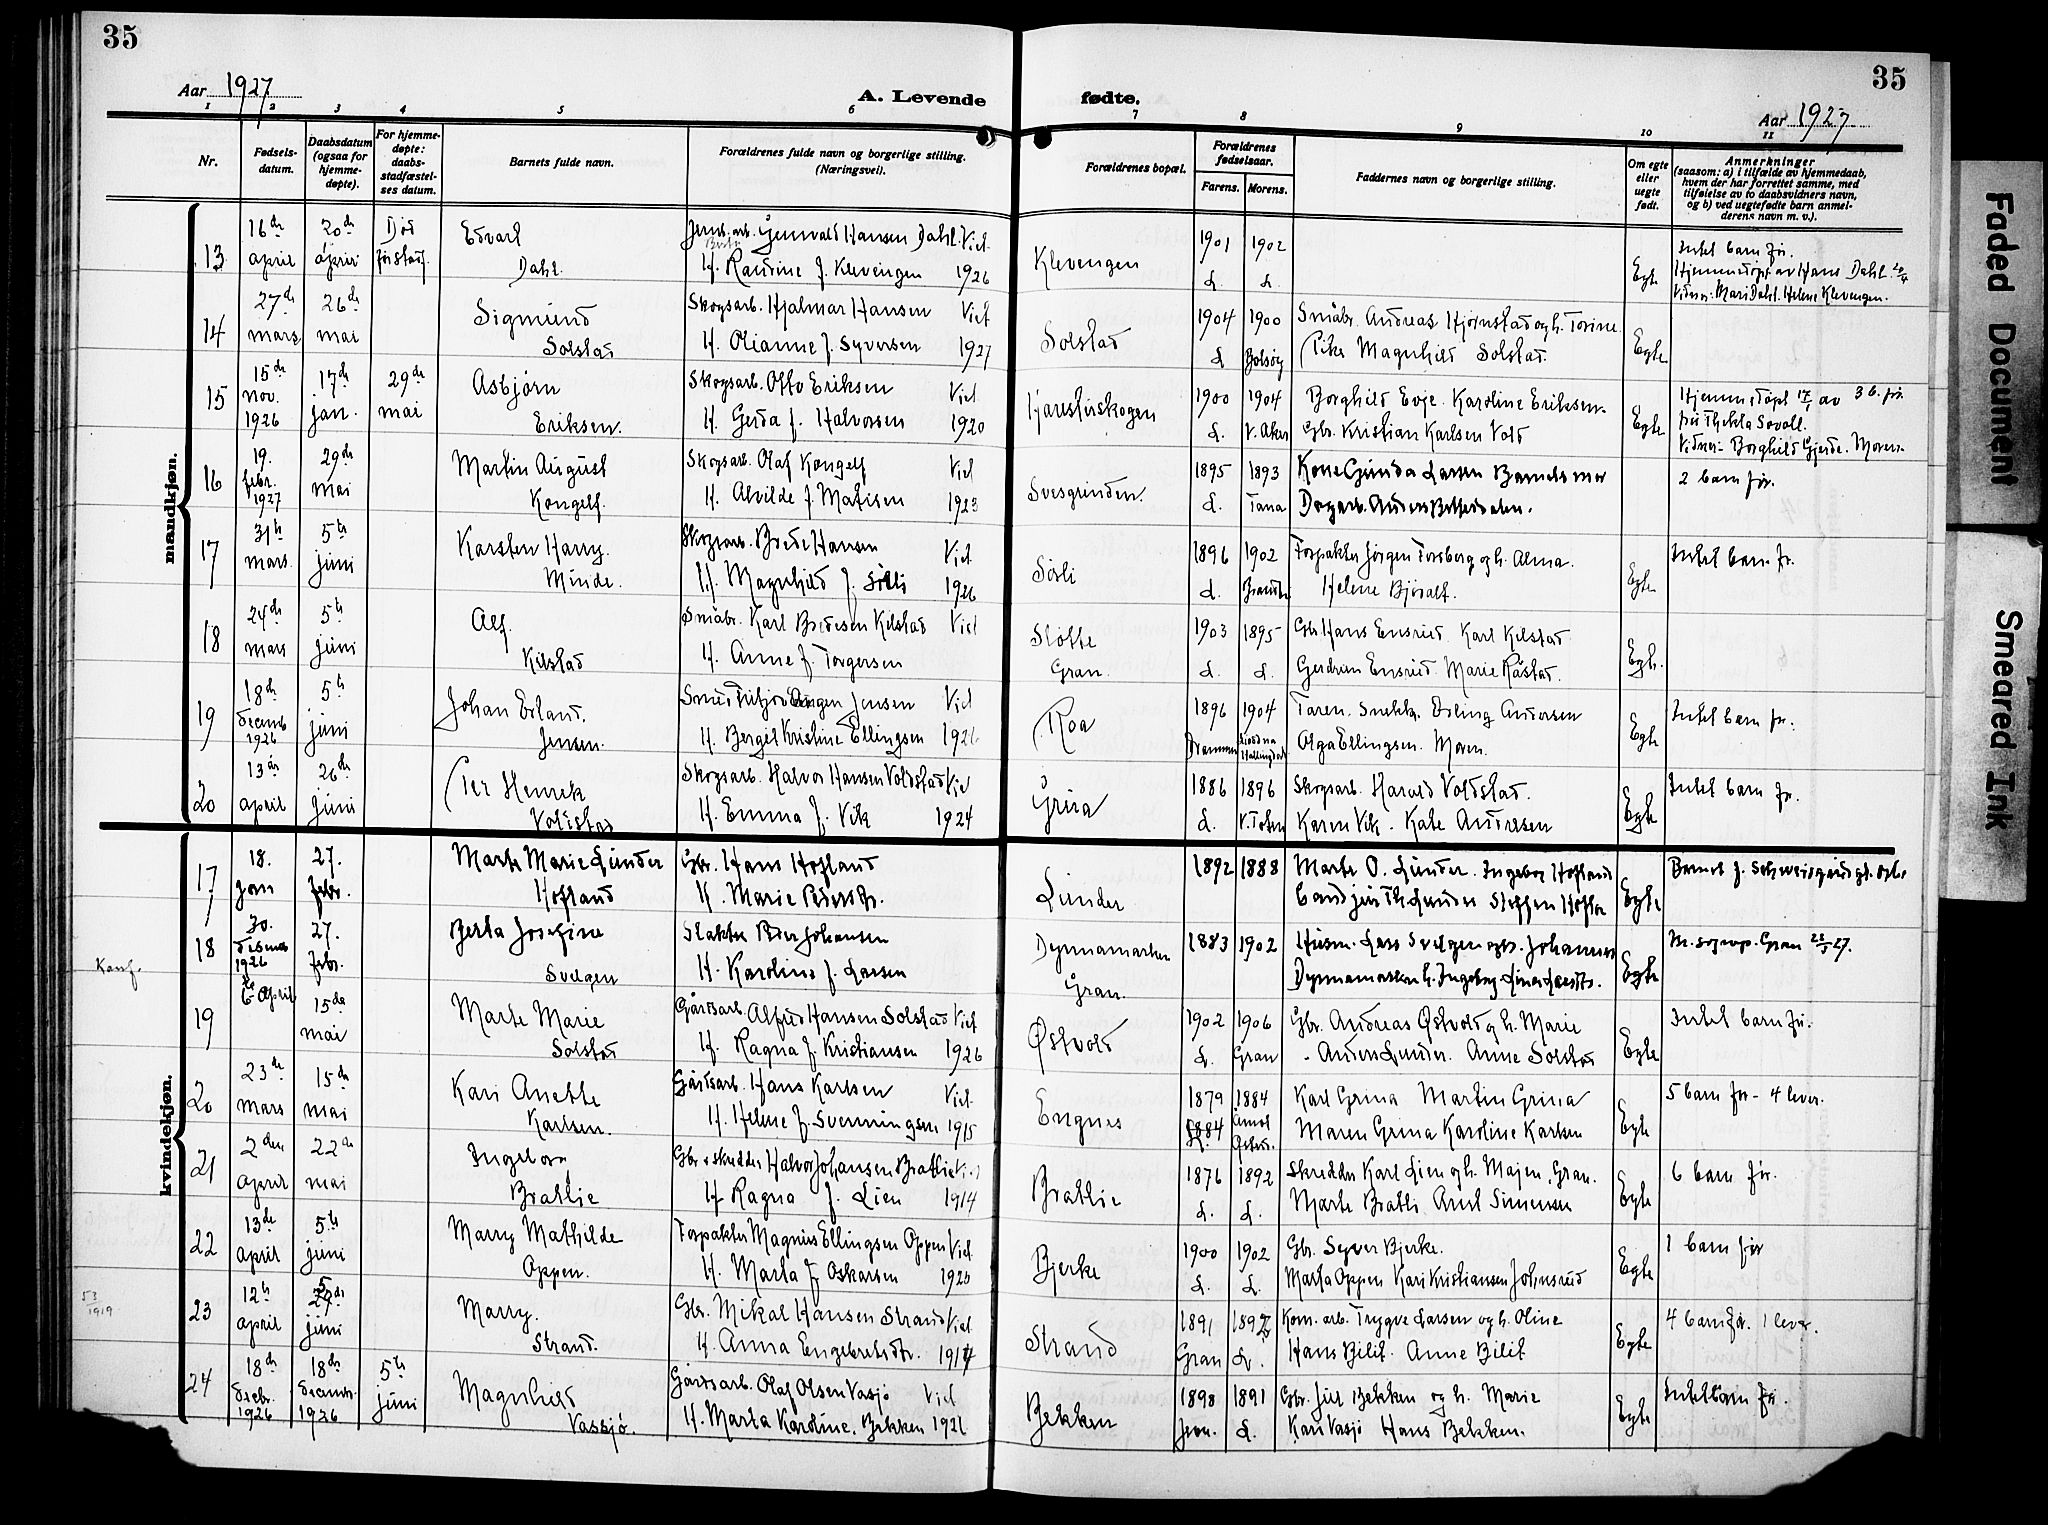 35
Aar 1927
A. Levende
1 2 3 4 5 6
Nr.
Fødsels-datum.
Daabsdatum (ogsaa for hjemme-døpte).
For hjemme-døpte: daabs-stadfæstel-ses datum.
Barnets fulde navn.
Forældrenes fulde navn og borgerlige stilling. (Næringsvei).
fødte.
35
Aar 1927
7 8 9 10 11
Forældrenes bopæl.
Forældrenes fødselsaar.
Farens. Morens.
Faddernes navn og borgerlige stilling.
Om egte eller uegte født.
Anmerkninger (saasom: a) i tilfælde av hjemmedaab, hvem der har forrettet samme, med tilføielse av to daabsvidners navn, og b) ved uegtefødte barn anmel-derens navn m. v.).
mandkjøn.
13 16de april 20de april Død før stadf. Edvart Dahl. Hansen Dahl. Viet
H. f. Klevengen 1926 Klevengen 1901 1902 L. L. Egte Intet barn før.
Hjemmedøpt av Hans Dahl. 20/4
Vidner: Mari Dahl. Helene Klevengen.
14 27de mars 26de mai Sigmund Solstad Skogsarb. Hjalmar Hansen Viet
H. Olianne f. Syversen 1927 Solstad 1904 1900 L. Småbr. Andreas og h. Torine
Pike Magnhild Solstad. Egte
15 15de nov. 1926 17de jan. 29de mai Asbjørn Eriksen. Skogsarb. Otto Eriksen Viet
H. Gerda f. Halvorsen 1920 1900 1904 L. V. Aker Borghild Evje. Karoline Eriksen.
Gbr. Kristian Karlsen Vold Egte Hjemmedøpt 17/1 av
Vidner: Borghild Gjerde. Moren.
16 19. febr. 1927 29de mai Martin August Kongelf. Skogsarb. Olaf Kongelf Viet
H. Alvilde f. Matisen 1923 1895 1893 L. Tana Kone Gunda Larsen Barnets mor
2 barn før.
17 31te mars. 5te juni Karsten Harry. Minde. Skogsarb. Brede Hansen Viet
H. Magnhild f. Sølli 1926 Søsli 1896 1902 L. Forpakter Jørgen Forsberg og h. Alma.
Helene Egte Intet barn før.
18 24de mars 5te juni Alf. Kilstad Småbr. Karl Bredesen Kilstad Viet
H. Anne f. Torgersen Gran. 1903 1895 L. L. Gbr Hans Ensrud. Karl Kilstad
Ensrud. Marie Råstad. Egte.
19 18de decemb 1926 5te juni Johan Erland. Jensen. Smed Jensen Viet
H. Bergit Kristine Ellingsen 1926 Roa 1896 1904 Drammen Faren. Snekk. Erling Andersen
Olga Ellingsen. Moren. Egte Intet barn før.
20 13de april 26de juni Per Henrik Voldstad Skogsarb. Halvor Hansen Voldstad Viet
H. Emma f. Vik 1924 Grina 1886 1896 L. V. Toten Skogsarb. Harald Voldstad.
Karen Vik. Kate Andresen Egte Intet barn før.
kvindekjøn.
17 18. jan 27. febr. Marte Marie Lunder Hofland Gbr. Hans Hofland
H. Marie Pedersdtr. Lunder 1892 1888 Marte O. Lunder. Ingeborg Hofland
Cand jur Th. Lunder Steffen Egte
Konf.
18 30. 1926 27. febr. Berta Josefine Svelgen Slakter Johansen
H. Karoline f. Larsen Dynnamarken Gran. 1883 1902 Husm. Lars Svelgen
Egte Gran 27.
19 6te April 15de mai Marte Marie Solstad Gårdsarb. Alfred Hansen Solstad Viet
H. Ragna f. Kristiansen 1926 Østvold 1902 1906 L. Gran Gbr. Andreas Østvold og h. Marie
- Anders Lunder. Anne Solstad Egte Intet barn før.
20 23de mars 15de mai Kari Anette Karlsen. Gårdsarb. Hans Karlsen Viet.
H. Helene f. Svenningsen 1915 Engnes 1879 1884 Karl Grina Martin Grina
Maren Grina Karoline Karlsen Egte 5 barn før - 4 lever.
21 2den april 22de mai Ingeborg Brattlie Gbr. & skredder Halvor Johansen Brattlie Viet
H Ragna f. Lien 1914 Brattlie 1876 1892 L. L. Skredder Karl Lien og h. Majen, Gran.
Marte Brattli Simensen Egte 6 barn før.
22 13de april 5te juni Marry Mathilde Oppen. Forpakter Magnus Ellingsen Oppen Viet.
H. Marta f. Oskarsen 1923 Bjerke 1900 1902 L. L. Gbr. Syver Bjerke.
Marta Oppen Kari Kristiansen Johnsrud Egte 1 barn før
53/1919
23 12te april juni Marry. Strand. Gbr. Mikal Hansen Strand Viet
H. Anna Engebretsdtr. 1914 Strand 1891 1892 Gran L. Kom. arb. Trygve Larsen og h. Oline
Hans Bilit. Anne Bilit Egte 4 barn før. 1 lever.
24 18de decbr. 1926 18de decembr. 1926 5te juni Magnhild Vassjø. Gårdsarb. Olaf Olsen Vasjø Viet
H. Marta Karoline. Bekken 1926 Bekken 1898 1891 L. Gbr. Juel Bekken og h. Marie
Kari Vasjø Hans Bekken. Egte Intet barn før.
Faded Document
Smeared Ink